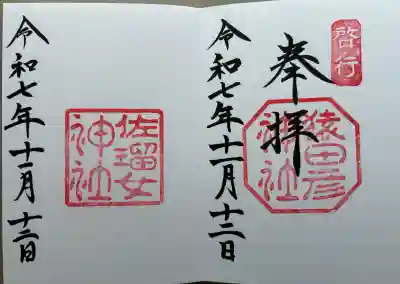 啓行
奉拝
猿田彦
神社
令和七年十一月十二日
佐瑠女
神社
令和七年十一月十二日